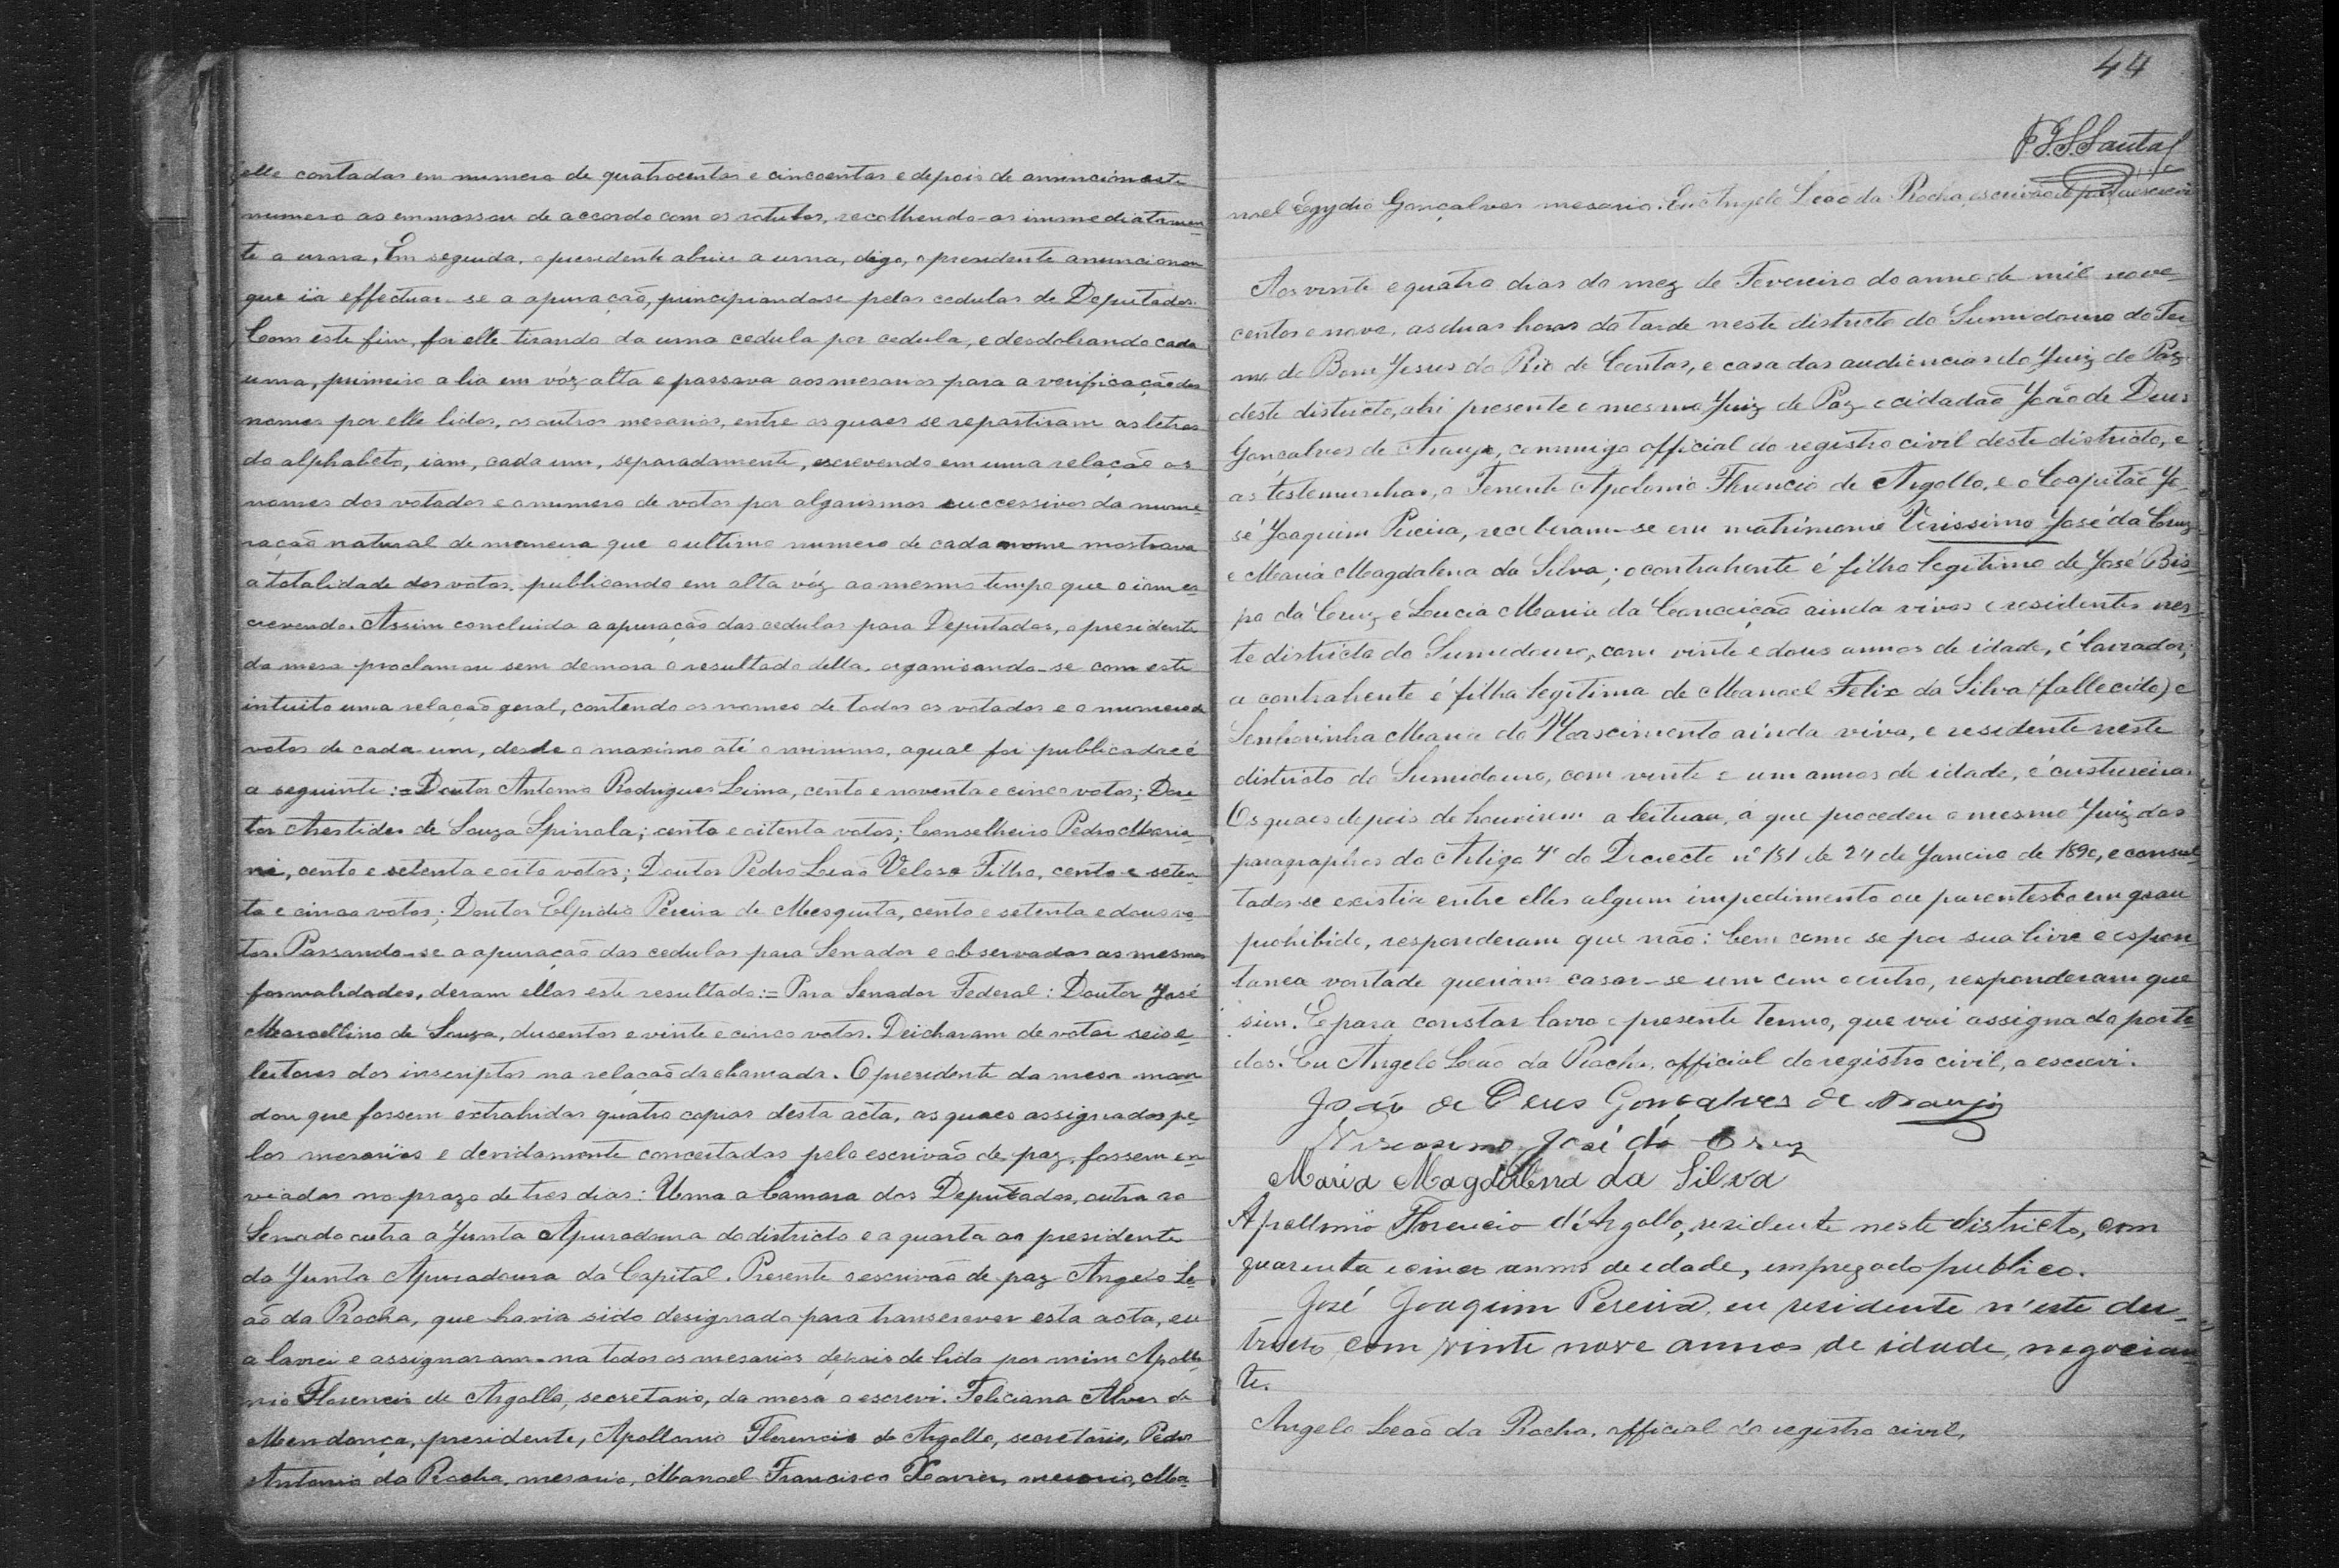 elle contadas em numero de quatrocentas e cincoentas e depois de annunciar este
numero as emmassou de accordo com os rotulos, recolhendo-as immediatamen-
te a urna. Em seguida, o presidente abriu a urna, digo, o presidente annunciou
que ia effectuar-se a apuração, principiando-se pelas cedulas de Deputados.
Com este fim, foi elle tirando da urna cedula por cedula, e desdobrando cada
uma, primeiro a lia em vóz alta e passava aos mesarios para a verificação dos
nomes por elle lidos, os outros mesarios, entre os quaes se repartiram as letras
do alphabeto, iam, cada um, separadamente, escrevendo em uma relação os
nomes dos votados e o numero de votos por algarismos successivos da nume-
ração natural de maneira que o ultimo numero de cada nome mostrava
a totalidade dos votos, publicando em alta vóz ao mesmo tempo que o iam es-
crevendo. Assim concluida a apuração das cedulas para Deputados, o presidente
da mesa proclamou sem demora o resultado della, organisando-se com este
intuito uma relação geral, contendo os nomes de todos os votados e o numero de
votos de cada um, desde o maximo até o minimo, a qual foi publicada e é
a seguinte := Doutor Antonio Rodrigues Lima, cento e noventa e cinco votos; Dou-
tor Arestides de Souza Spinola; cento e oitenta votos; Conselheiro Pedro Maria-
ni, cento e setenta e oito votos; Doutor Pedro Leão Veloso Filho, cento e seten-
ta e cinco votos; Doutor Elpidio Pereira de Mesquita, cento e setenta e dous vo-
tos. Passando-se a apuração das cedulas para Senador e observadas as mesmas
formalidades, deram ellas este resultado := Para Senador Federal: Doutor José
Marcellino de Souza, dusentos e vinte e cinco votos. Deicharam de votar seis e-
leitores dos inscriptos na relação da chamada. O presidente da mesa man-
dou que fossem extrahidas quatro copias desta acta, as quaes assignadas pe-
los mesarios e devidamente concertadas pelo escrivão de paz, fossem en-
viadas no prazo de tres dias: Uma a Camara dos Deputados, outra ao
Senado outra a Junta Apuradoura do districto e a quarta ao presidente
da Junta Apuradoura da Capital. Presente o escrivão de paz Angelo Le-
ão da Rocha, que havia sido designado para transcrever esta acta, eu
a lavrei e assignaram-na todos os mesarios depois de lida por mim Apollo-
nio Florencio de Argollo, secretario, da mesa o escrevi. Feliciano Alves de
Mendonça, presidente, Apollonio Florencio de Argollo, secretario, Pedro
Antonio da Rocha, mesario, Manoel Francisco Xavier, mesario, Ma-
44
P.J.S. Santa
noel Egydio Gonçalves mesario. Eu Angelo Leão da Rocha, escrivão de paz, o escrevi
Aos vinte e quatro dias do mez de Fevereiro do anno de mil nove-
centos e nove, as duas horas da tarde neste districto do Sumidouro do Ter-
mo de Bom Jesus do Rio de Contas, e casa das audiencias do Juiz de Paz
deste districto, ahi presente o mesmo Juiz de Paz o cidadão João de Deus
Goncalves de Araujo, commigo official do registro civil deste districto, e
as testemunhas, o Tenente Apolonio Florencio de Argollo, e o Capitão Jo-
sé Joaquim Pereira, receberam-se em matrimonio Verissimo José da Cruz
e Maria Magdalena da Silva; o contrahente é filho legitimo de José Bis-
po da Cruz e Lucia Maria da Conceição ainda vivos e residentes nes-
te districto do Sumidouro, com vinte e dous annos de idade, é lavrador;
a contrahente é filha legitima de Manoel Felix da Silva (fallecido) e
Senhorinha Maria do Nascimento ainda viva, e residente neste
districto do Sumidouro, com vinte e um annos de idade, é custureira.
Os quaes depois de houvirem a leitura, á que procedeu o mesmo Juiz dos
paragraphos do Artigo 7º do Decreto nº 181 de 24 de Janeiro de 1890, e consul-
tados se existia entre elles algum impedimento ou parentesco em grau
prohibido, responderam que não: bem como se por sua livre e espon-
tanea vontade queriam casar-se um com outro, responderam que
sim. E para constar lavro o presente termo, que vai assignado por to-
dos. Eu Angelo Leão da Rocha, official do registro civil, o escrevi.
João de Deus Gonçalves de Araujo
Verissimo José da Cruz
Maria Magdallena da Silva
Apollonio Florencio d'Argollo, residente neste districto, com
quarenta e cinco annos de edade, empregado publico.
José Joaquim Pereira, eu residente n'este dis-
tricto, com vinte nove annos de idade, negocian-
te.
Angelo Leão da Rocha, official do registro civil,